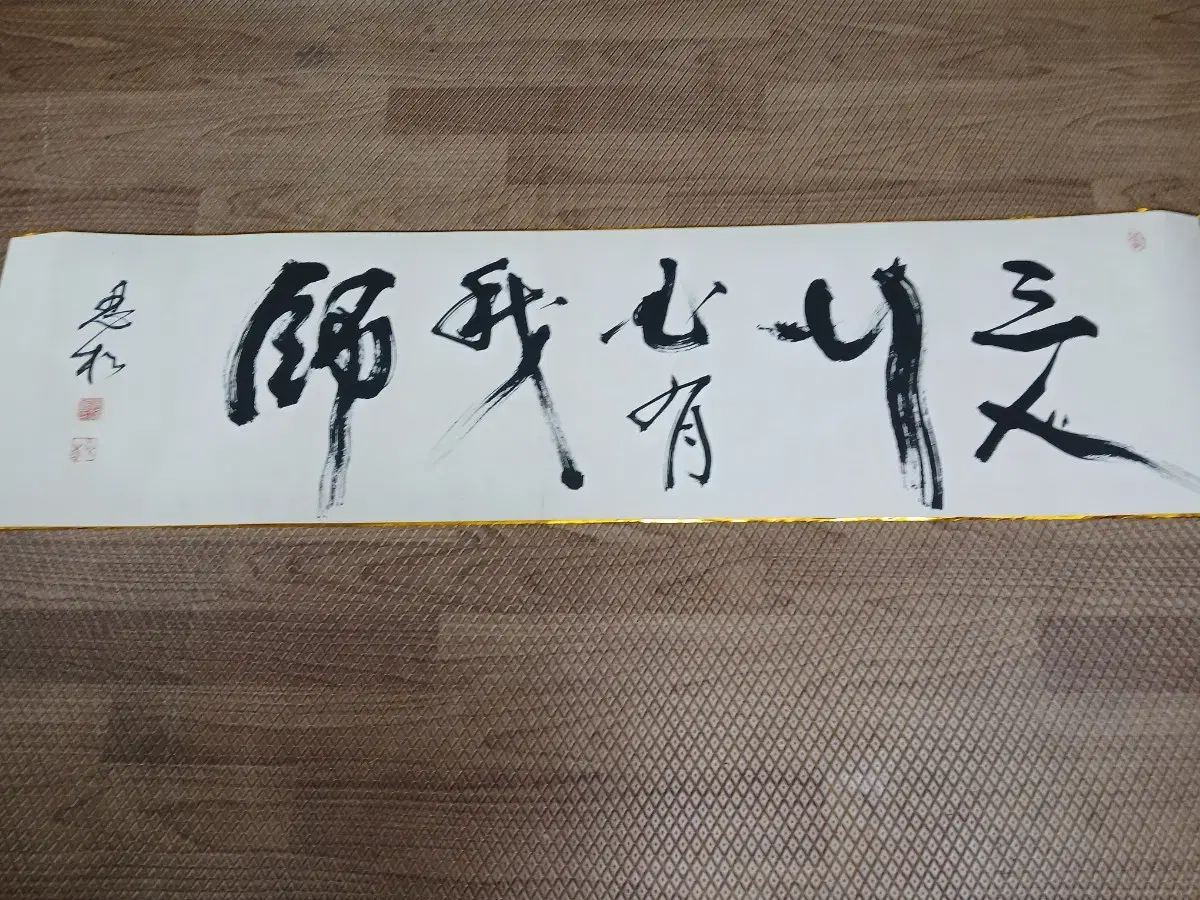 三人
行
必有
我
師